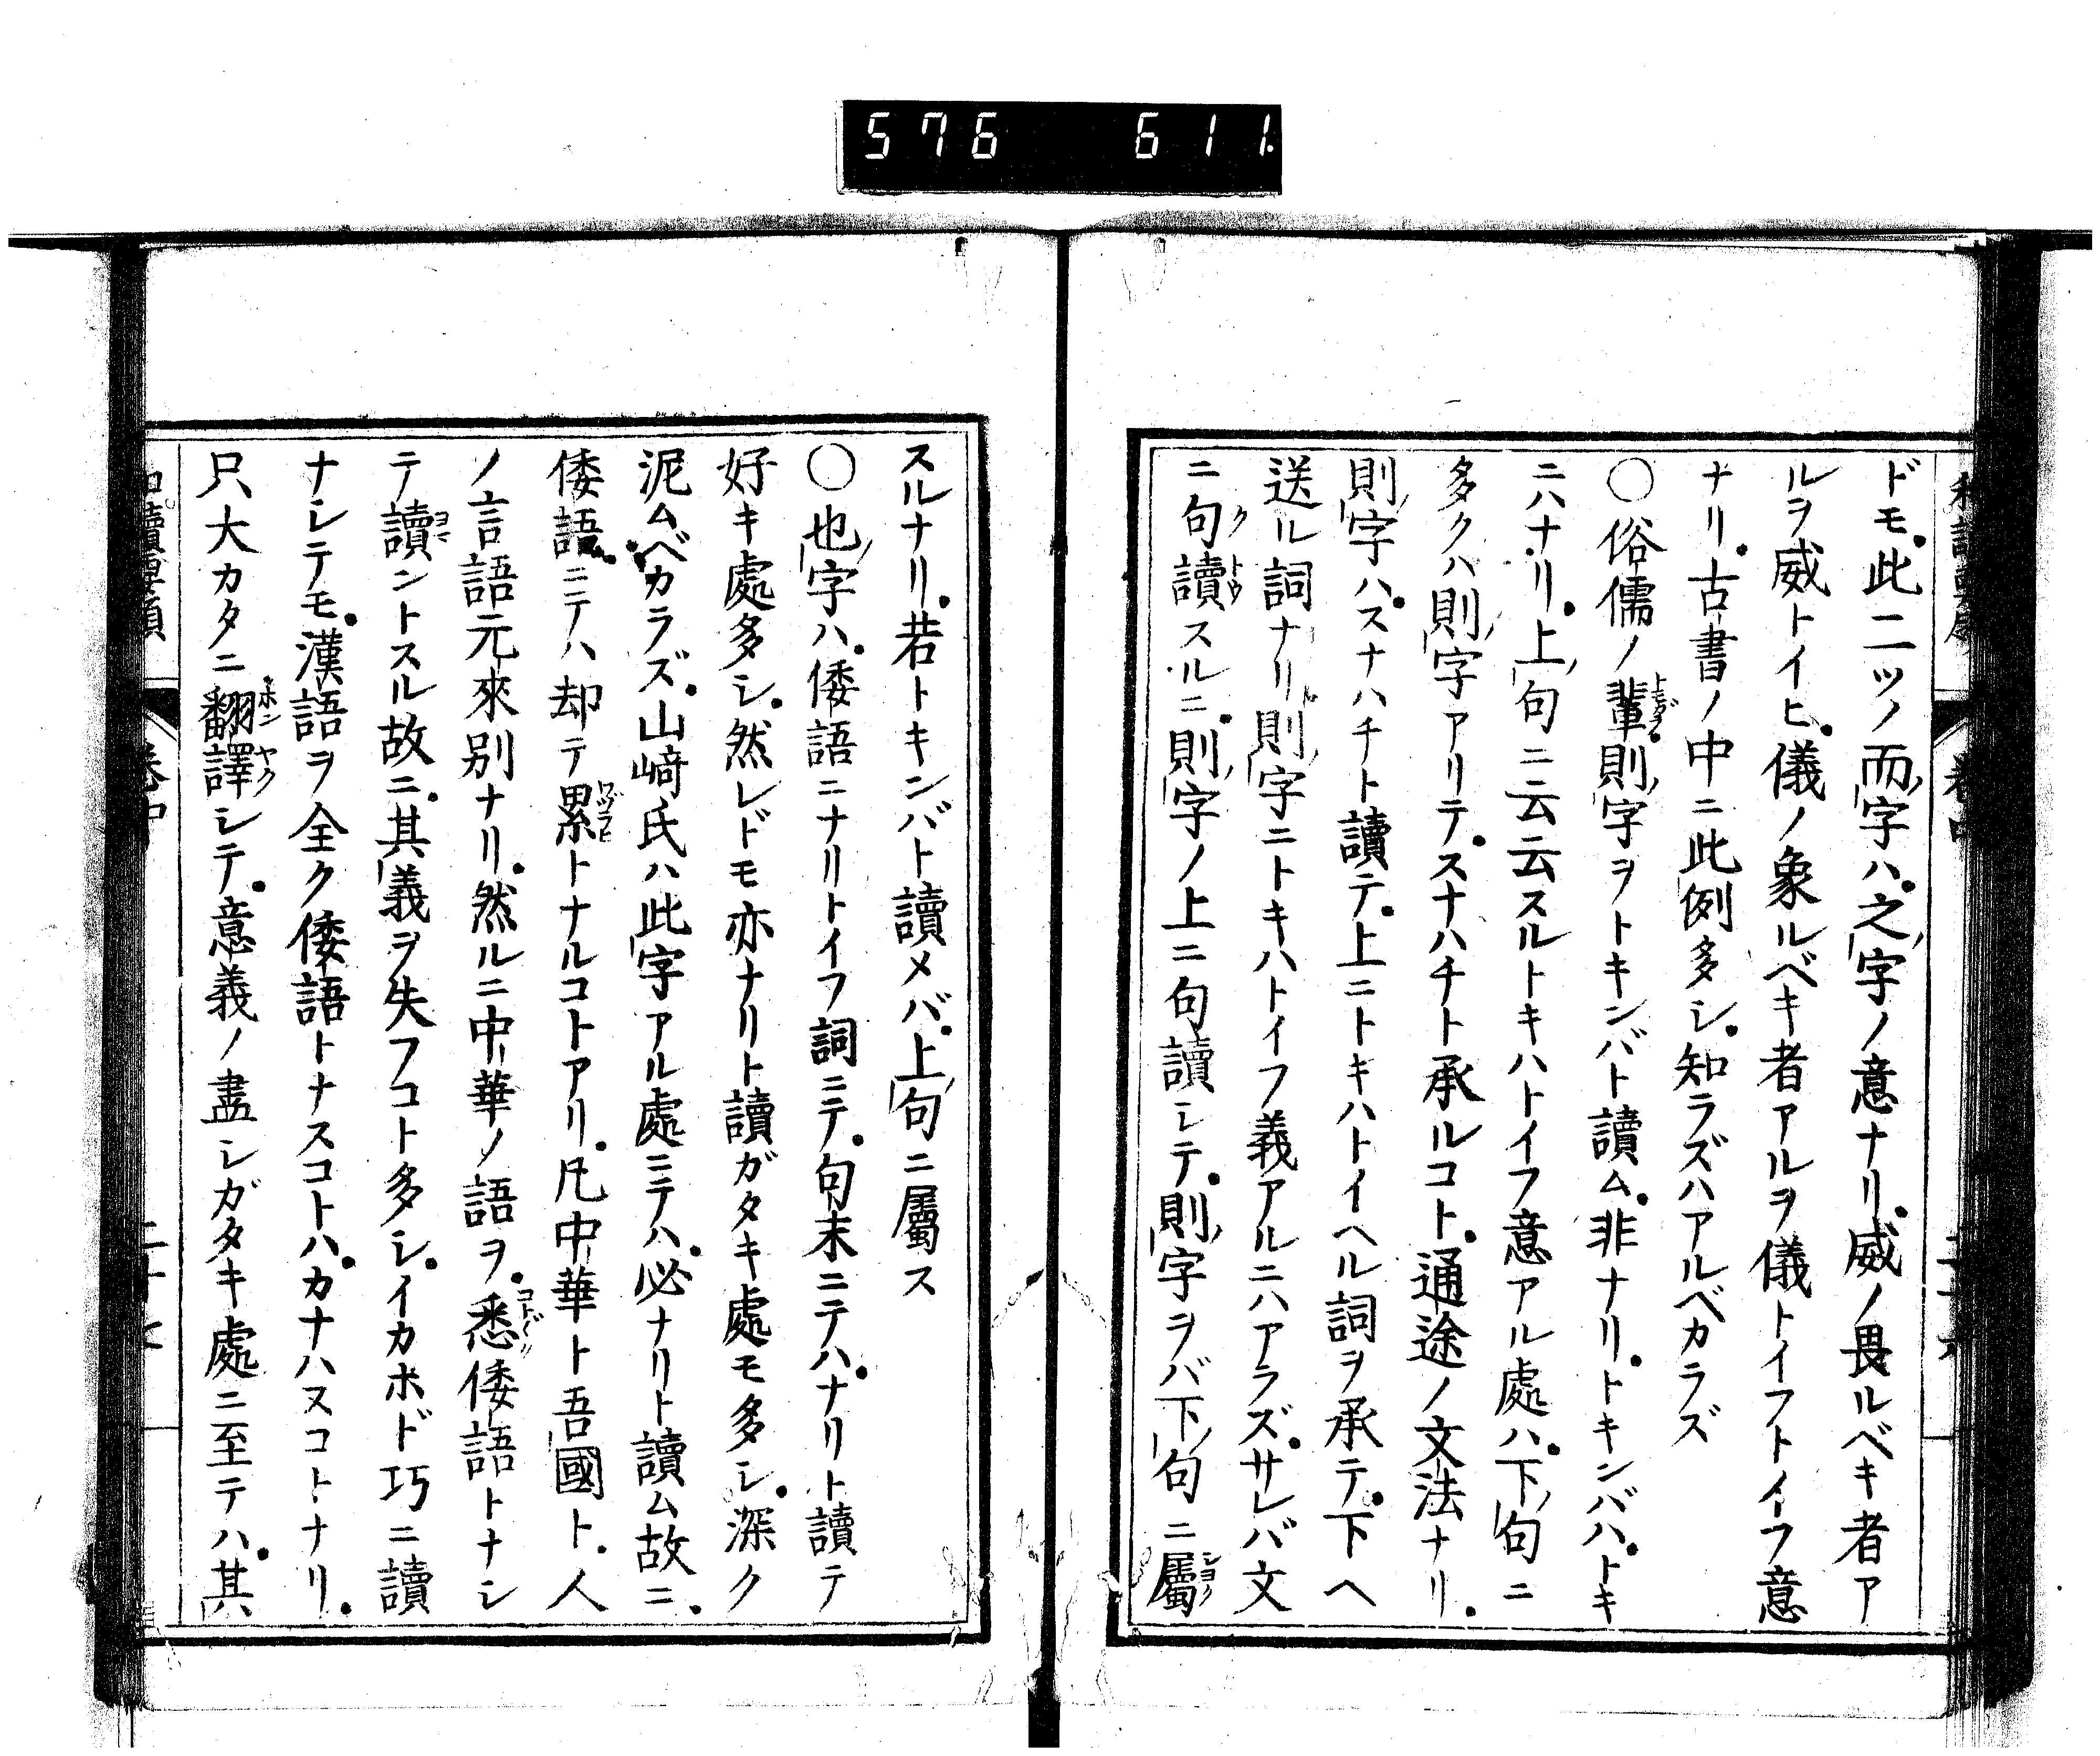 576 611
ドモ此二ツノ而字ハ之字ノ意ナリ威ノ畏ルベキ者ア
ルヲ威トイヒ儀ノ象ルベキ者アルヲ儀トイフトイフ意
ナリ古書ノ中ニ此例多シ知ラズハアルベカラズ
○俗儒ノ輩則字ヲトキンバト讀ム非ナリトキンバハトキ
ニハナリ上句ニ云云スルトキハトイフ意アル處ハ下句ニ
多クハ則字アリテスナハチト承ルコト通途ノ文法ナリ
則字ハスナハチト讀テ上ニトキハトイヘル詞ヲ承テ下ヘ
送ル詞ナリ則字ニトキハトイフ義アルニハアラズサレバ文
ニ句讀スルニ則字ノ上ニ句讀シテ則字ヲバ下句ニ屬
スルナリ若トキンバト讀メバ上句ニ屬ス
○也字ハ倭語ニナリトイフ詞ニテ句末ニテハナリト讀テ
好キ處多シ然レドモ亦ナリト讀ガタキ處モ多シ深ク
泥ムベカラズ山﨑氏ハ此字アル處ニテハ必ナリト讀ム故ニ
倭語ニテハ却テ累トナルコトアリ凡中華ト吾國ト人
ノ言語元來別ナリ然ルニ中華ノ語ヲ悉倭語トナシ
テ讀ントスル故ニ其義ヲ失フコト多シイカホド巧ニ讀
ナレテモ漢語ヲ全ク倭語トナスコトハカナハヌコトナリ
只大カタニ翻譯シテ意義ノ盡シガタキ處ニ至テハ其